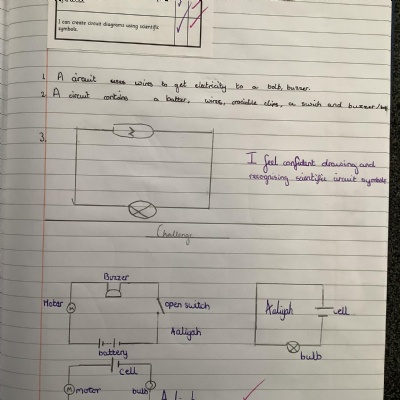 I can create circuit diagrams using scientific
symbols.
1. A circuit uses wires to get eletricity to a bulb, buzzer.
2. A circuit contains a batter, wires, crocidile clips, a swich and buzzer/
3.
I feel confident drawing and
recognising scientific circuit symbols
Challenge
Buzzer
Motor
M
open switch
Aaliyah
battery
Aaliyah
cell
bulb
cell
M
motor
bulb